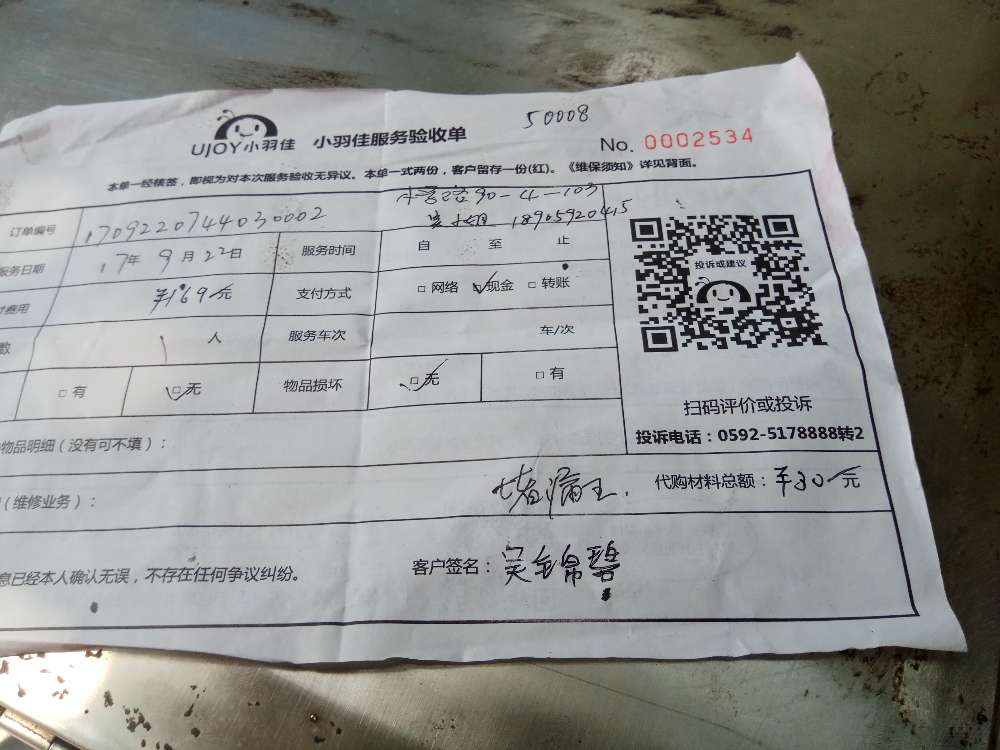 50008
UJOY小羽佳 小羽佳服务验收单
No. 0002534
本单一经核签，即视为对本次服务验收无异议。本单一式两份，客户留存一份(红)。《维保须知》详见背面。
90-4-103
订单编号 1709220744030002 18905920415
服务日期 17年 9月22日 服务时间 自 至 止
费用 ¥169元 支付方式 □ 网络 ☑ 现金 □ 转账
数 1 人 服务车次 车/次
□ 有 ☑ 无 物品损坏 ☑ 无 □ 有
投诉或建议
扫码评价或投诉
投诉电话：0592-5178888转2
物品明细（没有可不填）：
（维修业务）： 堵漏王. 代购材料总额：¥30元
息已经本人确认无误，不存在任何争议纠纷。 客户签名：吴锦碧